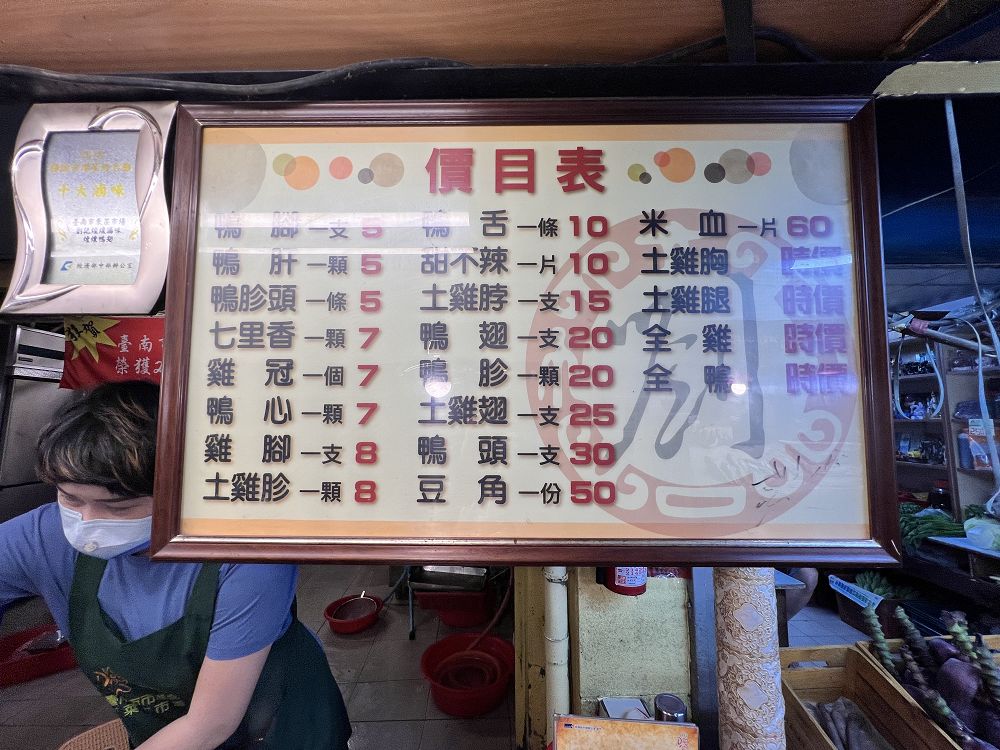 十大滷味
臺南市東菜市場
經濟部中部辦公室
臺南市
榮獲2
價目表
鴨腳 一支 5
鴨肝 一顆 5
鴨胗頭 一條 5
七里香 一顆 7
雞冠 一個 7
鴨心 一顆 7
雞腳 一支 8
土雞胗 一顆 8
鴨舌 一條 10
甜不辣 一片 10
土雞脖 一支 15
鴨翅 一支 20
鴨胗 一顆 20
土雞翅 一支 25
鴨頭 一支 30
豆角 一份 50
米血 一片 60
土雞胸 時價
土雞腿 時價
全雞 時價
全鴨 時價
菜市場